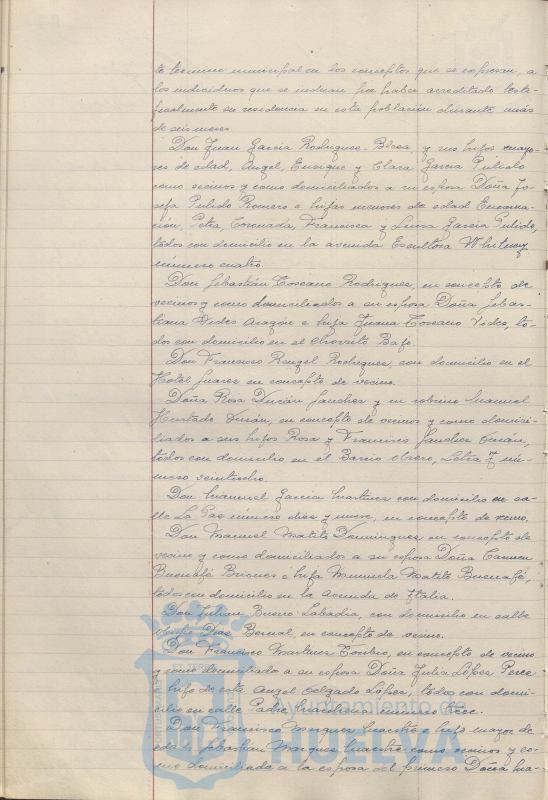 te termino municipal en los conceptos que se expresan, a
los individuos que se indican por haber acreditado testi-
ficalmente su residencia en esta población durante más
de seis meses
Don Juan Garcia Rodriguez-Brea y sus hijos mayo-
res de edad, Angel, Enrique y Clara Garcia Pulido
como vecinos y como domiciliados a su esposa Doña Jo-
sefa Pulido Romero e hijas menores de edad Encarna-
ción, Petra, Coronada, Francisca y Luisa Garcia Pulido,
todos con domicilio en la avenida Escultora Whitney
número cuatro.
Don Sebastián Toscano Rodriguez, en concepto de
vecinos y como domiciliados a su esposa Doña Sebas-
tiana Vides Aragón e hija Juana Toscano Vides, to-
dos con domicilio en el Chorrito Bajo.
Don Francisco Rengel Rodriguez, con domicilio en el
Hotel Suarez en concepto de vecino.
Doña Rosa Durán Sanchez y su sobrino Manuel
Hurtado Durán, en concepto de vecinos y como domici-
liados a sus hijos Rosa y Francisco Sanchez Durán,
todos con domicilio en el Barrio Obrero, Letra Z nú-
mero veintiocho.
Don Manuel Garcia Martinez con domicilio en ca-
lle La Paz número diez y nueve, en concepto de vecino.
Don Manuel Matito Dominguez en concepto de
vecino y como domiciliados a su esposa Doña Carmen
Buenafé Briones e hija Manuela Matito Buenafé,
todos con domicilio en la Avenida de Italia.
Don Julian Bueno Labadia, con domicilio en calle
Diaz Bernal, en concepto de vecino.
Don Francisco Martinez Toribio, en concepto de vecino
y como domiciliado a su esposa Doña Julia López Perez
e hijo de esta Angel Delgado López, todos con domi-
cilio en calle Padre Marchena número trece.
Don Francisco Marquez Maestre e hijo mayor de
edad Sebastian Marquez Maestre como vecinos y co-
mo domiciliada a la esposa del primero Doña Ma-
Ayuntamiento de
HUELVA